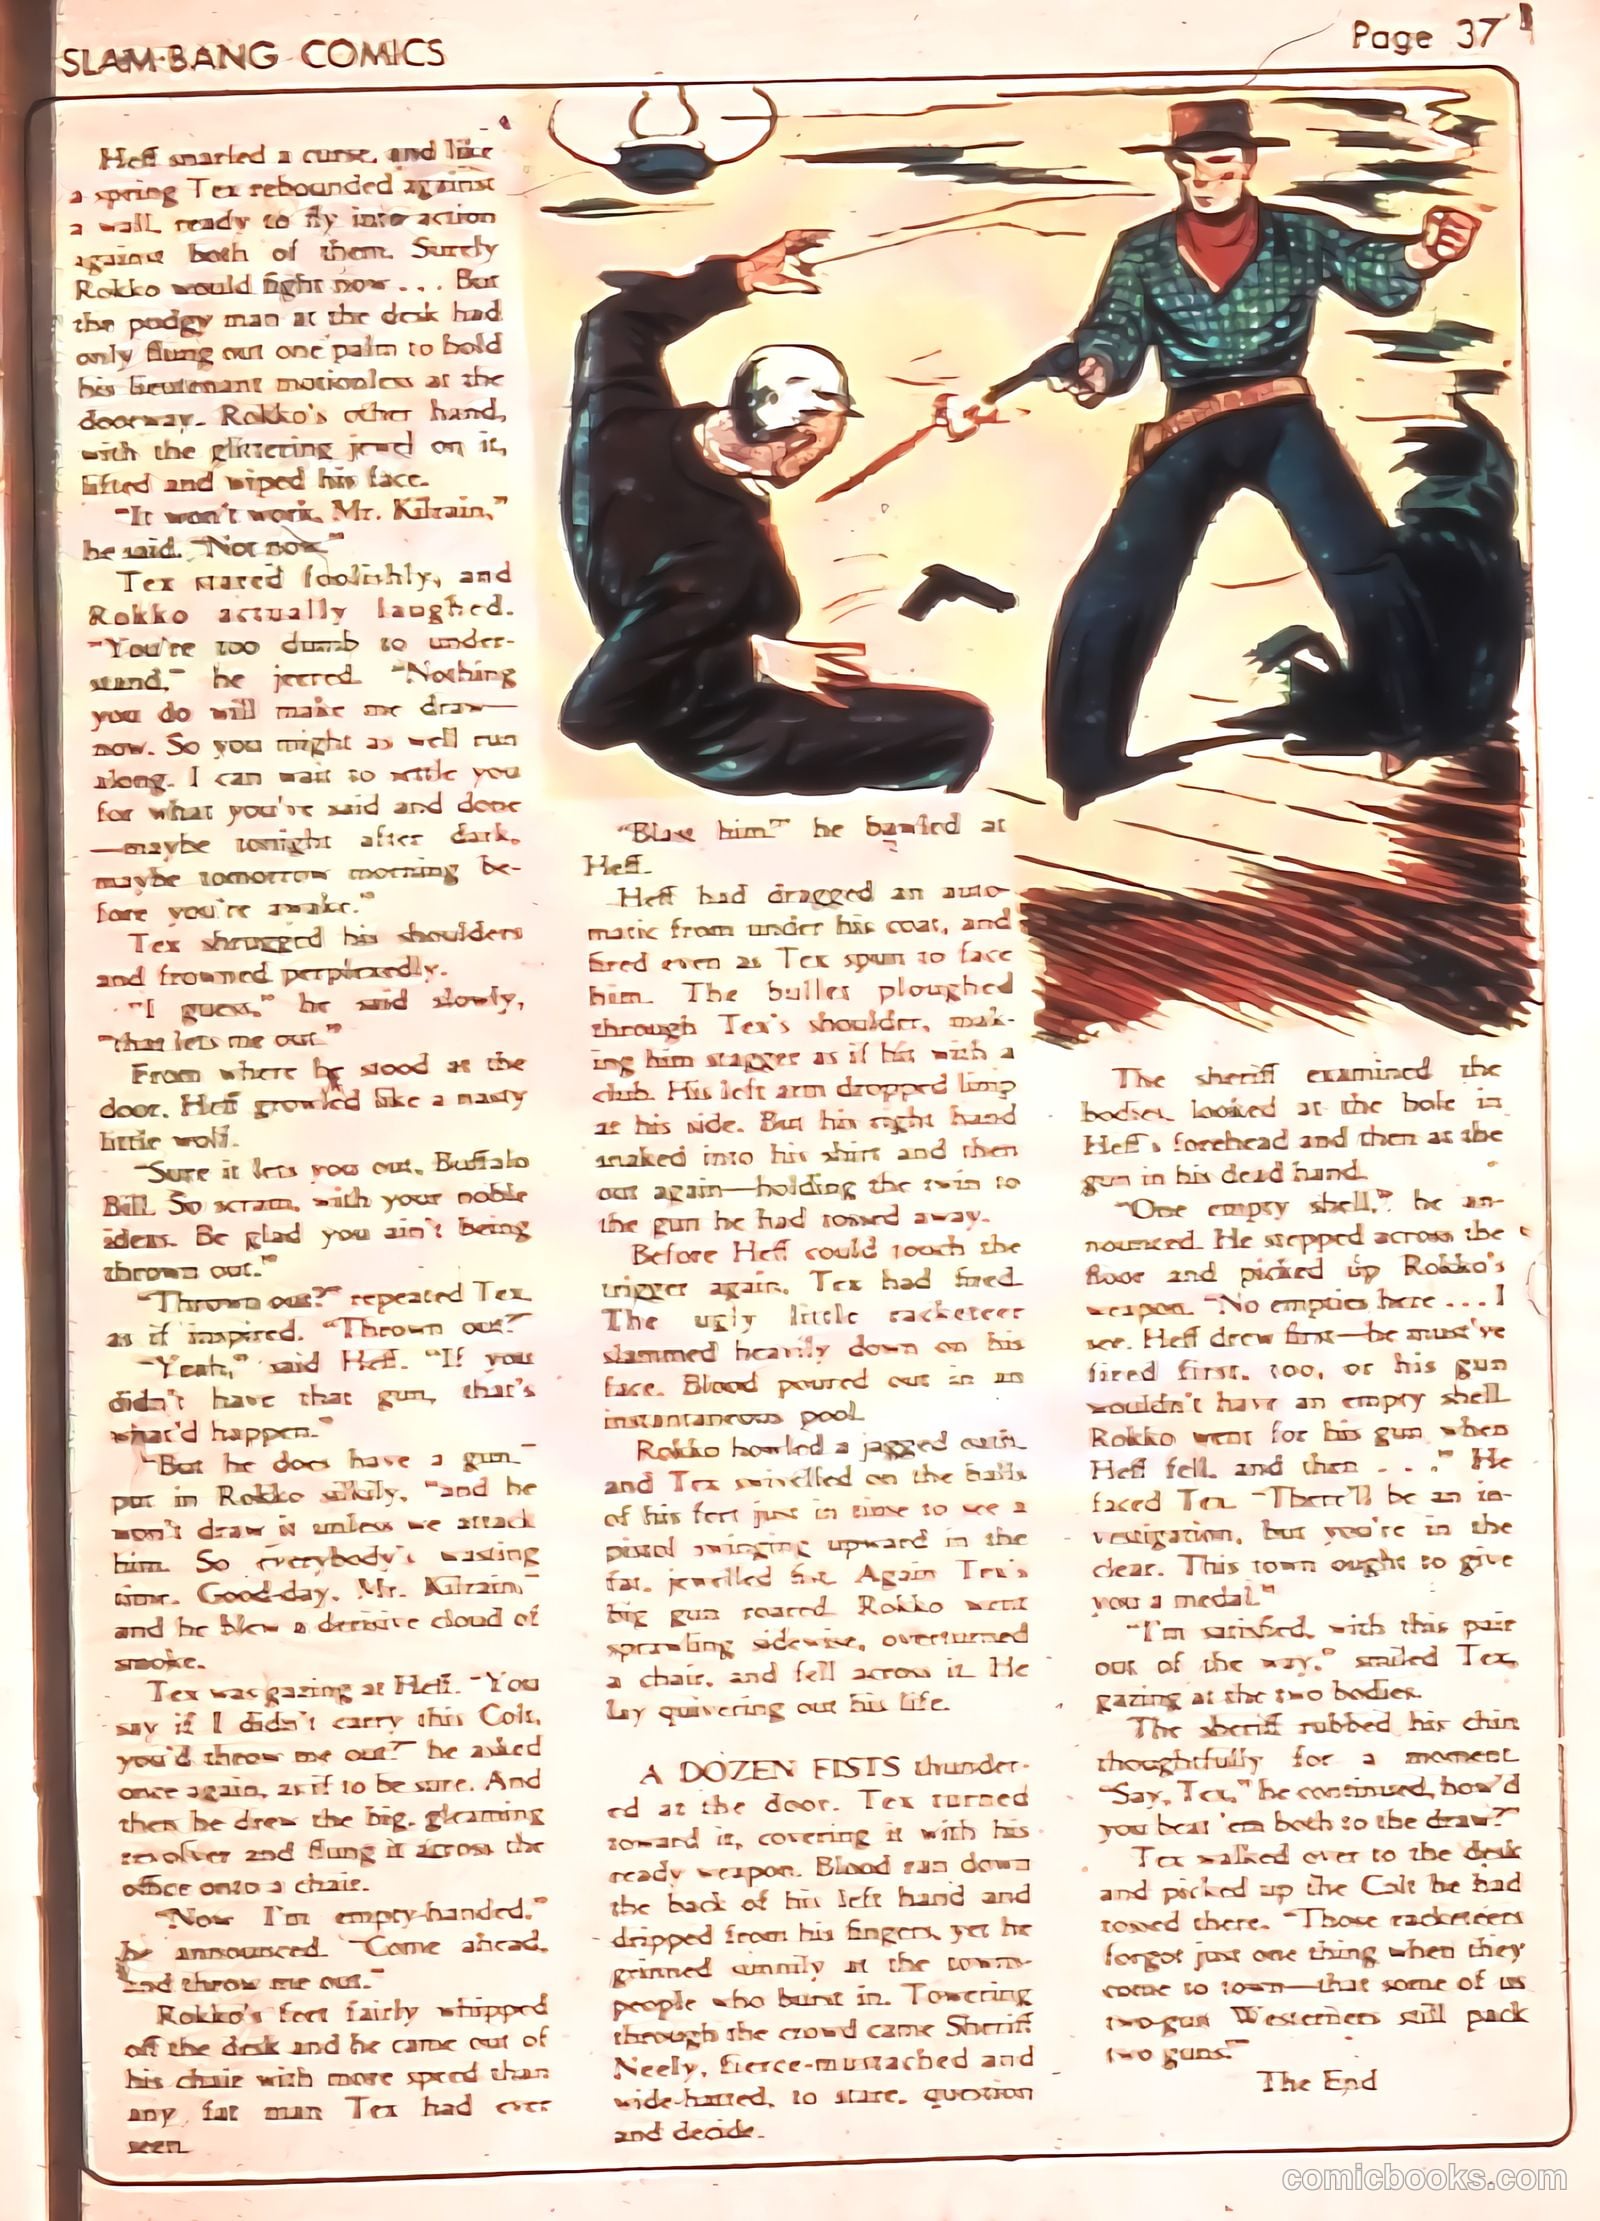 SLAM-BANG COMICS
Page 37
Heff snarled a curse, and like
a spring Tex rebounded against
a wall, ready to fly into action
against both of them. Surely
Rokko would fight now . . . But
the podgy man at the desk had
only flung out one palm to hold
his lieutenant motionless at the
doorway. Rokko's other hand,
with the glittering jewel on it,
lifted and wiped his face.
"It won't work, Mr. Kilrain,"
he said. "Not now."
Tex stared foolishly, and
Rokko actually laughed.
"You're too dumb to under-
stand," he jeered. "Nothing
you do will make me draw—
now. So you might as well run
along. I can wait to settle you
for what you've said and done
—maybe tonight after dark,
maybe tomorrow morning be-
fore you're awake."
Tex shrugged his shoulders
and frowned perplexedly.
"I guess," he said slowly,
"that lets me out."
From where he stood at the
door, Heff growled like a nasty
little wolf.
"Sure it lets you out, Buffalo
Bill. So scram, with your noble
ideas. Be glad you ain't being
thrown out."
"Thrown out?" repeated Tex
as if inspired. "Thrown out?"
"Yeah," said Heff. "If you
didn't have that gun, that's
what'd happen."
"But he does have a gun,"
put in Rokko silkily, "and he
won't draw it unless we attack
him. So everybody's wasting
time. Good-day, Mr. Kilrain,"
and he blew a derisive cloud of
smoke.
Tex was gazing at Heff. "You
say if I didn't carry this Colt,
you'd throw me out?" he asked
once again, as if to be sure. And
then he drew the big, gleaming
revolver and flung it across the
office onto a chair.
"Now I'm empty-handed,"
he announced. "Come ahead,
and throw me out."
Rokko's feet fairly whipped
off the desk and he came out of
his chair with more speed than
any fat man Tex had ever
seen.
"Blast him!" he bawled at
Heff.
Heff had dragged an auto-
matic from under his coat, and
fired even as Tex spun to face
him. The bullet ploughed
through Tex's shoulder, mak-
ing him stagger as if hit with a
club. His left arm dropped limp
at his side. But his right hand
snaked into his shirt and then
out again—holding the twin to
the gun he had tossed away.
Before Heff could touch the
trigger again, Tex had fired.
The ugly little racketeer
slammed heavily down on his
face. Blood poured out in an
instantaneous pool.
Rokko howled a jagged oath
and Tex swivelled on the balls
of his feet just in time to see a
pistol swinging upward in the
fat, jewelled fist. Again Tex's
big gun roared. Rokko went
sprawling sidewise, overturned
a chair, and fell across it. He
lay quivering out his life.
A DOZEN FISTS thunder-
ed at the door. Tex turned
toward it, covering it with his
ready weapon. Blood ran down
the back of his left hand and
dripped from his fingers, yet he
grinned at the towns-
people who burst in. Towering
through the crowd came Sheriff
Neely, fierce-mustached and
wide-hatted, to stare, question
and decide.
The sheriff examined the
bodies, looked at the hole in
Heff's forehead and then at the
gun in his dead hand.
"One empty shell," he an-
nounced. He stepped across the
floor and picked up Rokko's
weapon. "No empties here . . . I
see. Heff drew first—he must've
fired first, too, or his gun
wouldn't have an empty shell.
Rokko went for his gun when
Heff fell, and then . . ." He
faced Tex. "There'll be an in-
vestigation, but you're in the
clear. This town ought to give
you a medal."
"I'm satisfied, with this pair
out of the way," smiled Tex,
gazing at the two bodies.
The sheriff rubbed his chin
thoughtfully for a moment.
"Say, Tex," he continued, how'd
you beat 'em both to the draw?"
Tex walked over to the desk
and picked up the Colt he had
tossed there. "Those racketeers
forgot just one thing when they
come to town—that some of us
two-gun Westerners still pack
two guns."
The End
comicbooks.com